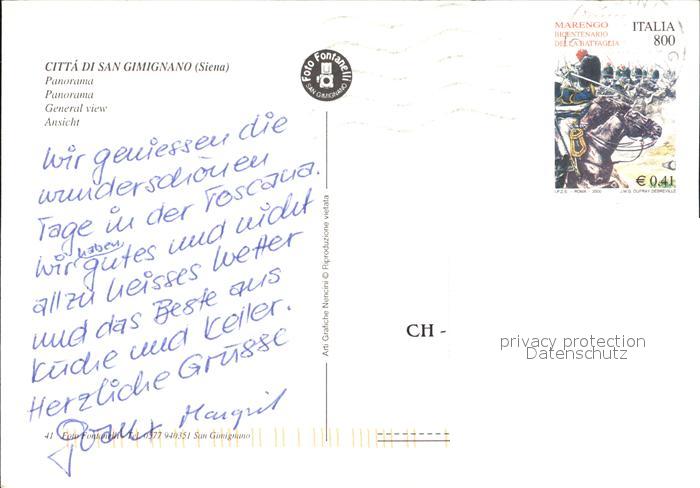 CITTÁ DI SAN GIMIGNANO (Siena)
Panorama
Panorama
General view
Ansicht
Foto Fontanelli
SAN GIMIGNANO
MARENGO
BICENTENARIO
DELLA BATTAGLIA
ITALIA
800
€ 0,41
I.P.Z.S. - ROMA - 2000
J.W.G. DUFRAY DEBREVILLE
Wir geniessen die
wunderschönen
Tage in der Toscana.
Wir haben gutes und nicht
allzu heisses Wetter
und das Beste aus
Küche und Keller.
Herzliche Grüsse
Margrit
Arti Grafiche Nencini © Riproduzione vietata
CH -
privacy protection
Datenschutz
41 Foto Fontanelli - Tel. 0577 940351 San Gimignano